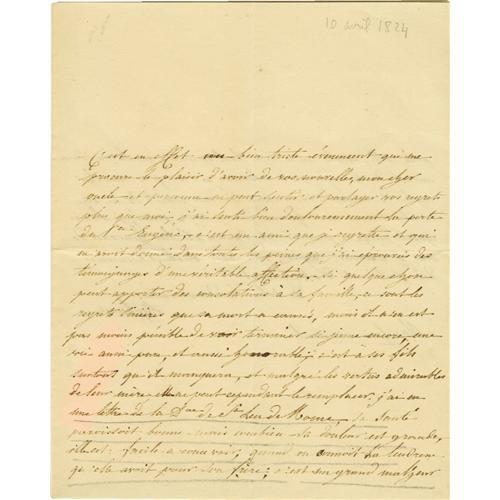 10 avril 1824
C'est en effet un bien triste évènement qui me
procure le plaisir d'avoir de vos nouvelles, mon cher
oncle, et personne ne peut sentir et partager vos regrets
plus que moi, j'ai senti bien douloureusement la perte
du Pce Eugène, c'est un ami que je regrette et qui
m'avoit donné dans toutes les peines que j'ai éprouvées des
témoignages d'une véritable affection. Si quelque chose
peut apporter des consolations à sa famille, ce sont les
regrets sincères que sa mort a causés, mais il n'en est
pas moins pénible de voir terminer si jeune encore, une
vie aussi pure, et aussi honorable; c'est à ses fils
surtout qu'il manquera, et malgré les vertus admirables
de leur mère elle ne peut cependant le remplacer, j'ai eu
une lettre de la Dsse de St Leu de Rome, sa santé
paroissoit bonne mais combien sa douleur est grande,
il est facile à concevoir, quand on connoit la tendresse
qu'elle avoit pour son frère; c'est un grand malheur